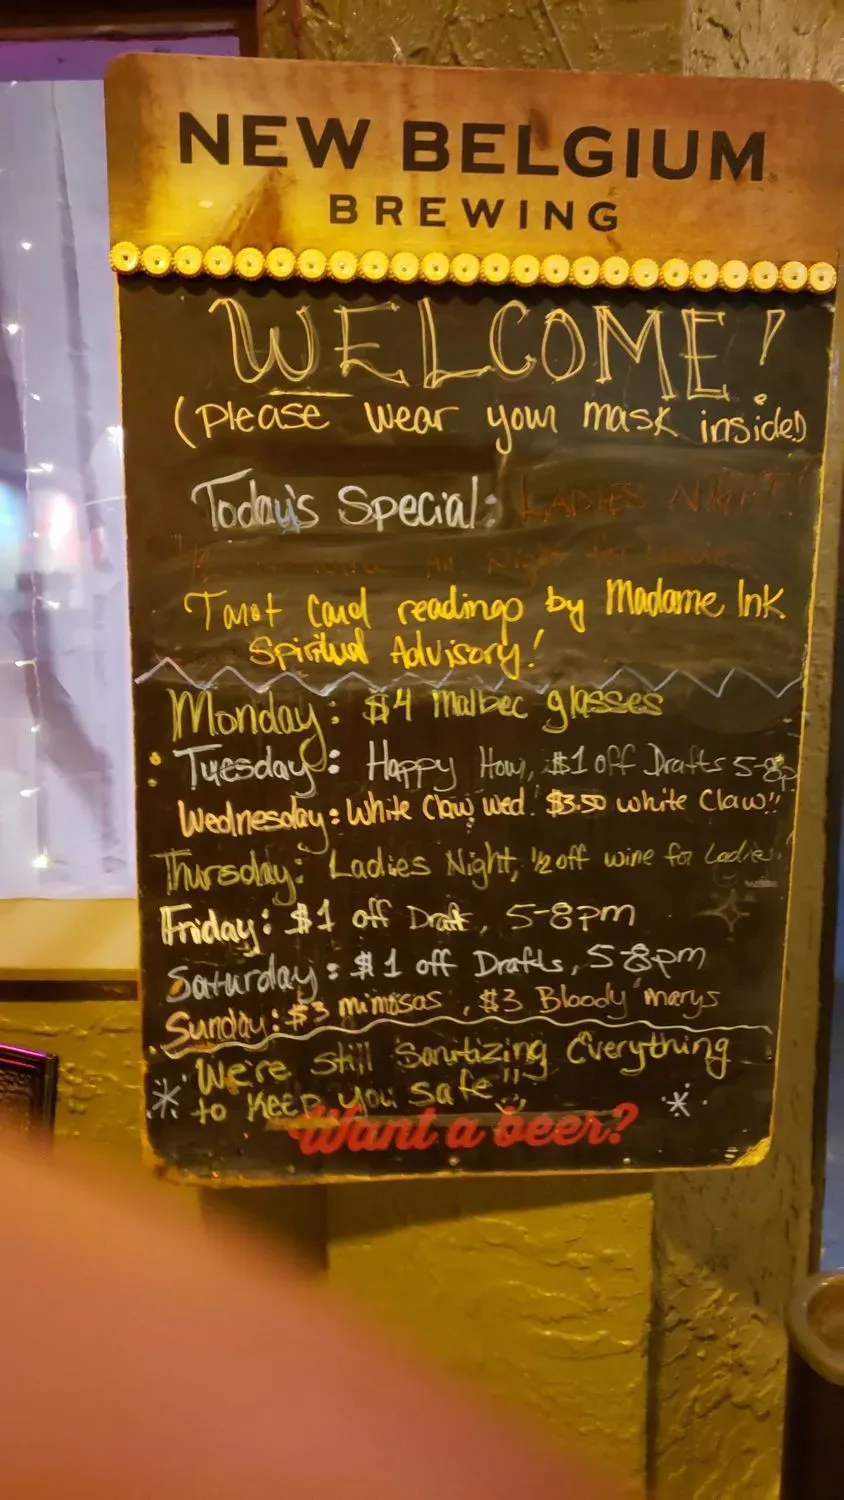 NEW BELGIUM
BREWING
WELCOME!
(Please wear your mask inside)
Today's Special: LADIES NIGHT!!
1/2 All Night for Ladies
Tarot Card readings by Madame Ink
Spiritual Advisory!
Monday: $4 Malbec glasses
Tuesday: Happy Hour, $1 off Drafts 5-8p
Wednesday: White Claw Wed! $3.50 White Claw!!
Thursday: Ladies Night, 1/2 off wine for Ladies!
Friday: $1 off Draft, 5-8pm
Saturday: $1 off Drafts, 5-8pm
Sunday: $3 mimosas, $3 Bloody marys
We're still Sanitizing Everything
to Keep you safe!!
Want a beer?